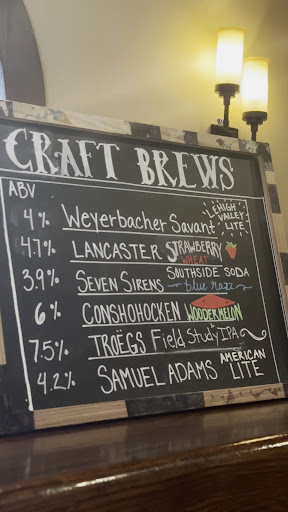 CRAFT BREWS
ABV
4% Weyerbacher Savant LEHIGH VALLEY LITE
4.7% LANCASTER STRAWBERRY WHEAT
3.9% SEVEN SIRENS SOUTHSIDE SODA blue razz
6% CONSHOHOCKEN WOODERMELON
7.5% TRÖEGS Field Study IPA
4.2% SAMUEL ADAMS AMERICAN LITE